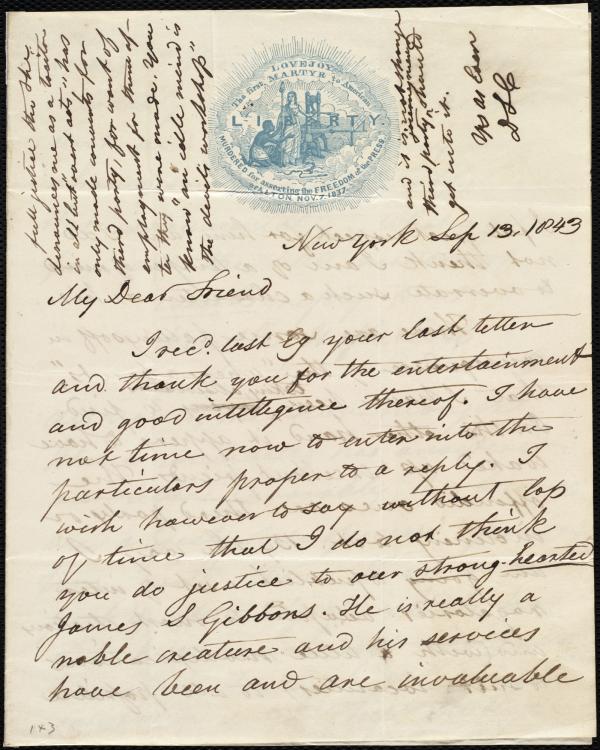 LOVEJOY
The first MARTYR to American
LIBERTY.
MURDERED for asserting the FREEDOM of the PRESS.
ALTON, NOV. 7. 1837.
New York Sep 13, 1843
My Dear Friend
I recd. last Eg your last letter
and thank you for the entertainment
and good intelligence thereof. I have
not time now to enter into the
particulars proper to a reply. I
wish however to say without lop
of time that I do not think
you do justice to our strong-hearted
James S Gibbons. He is really a
noble creature and his services
have been and are invaluable
full justice tho she
denounces me as a traitor
in all but "overt acts," has
only made comments for
third party, for want of
employment for them
they were made. You
know "an idle mind is
the devil's workshop"
and is
third party, should
get into it.
Yrs as Ever
143